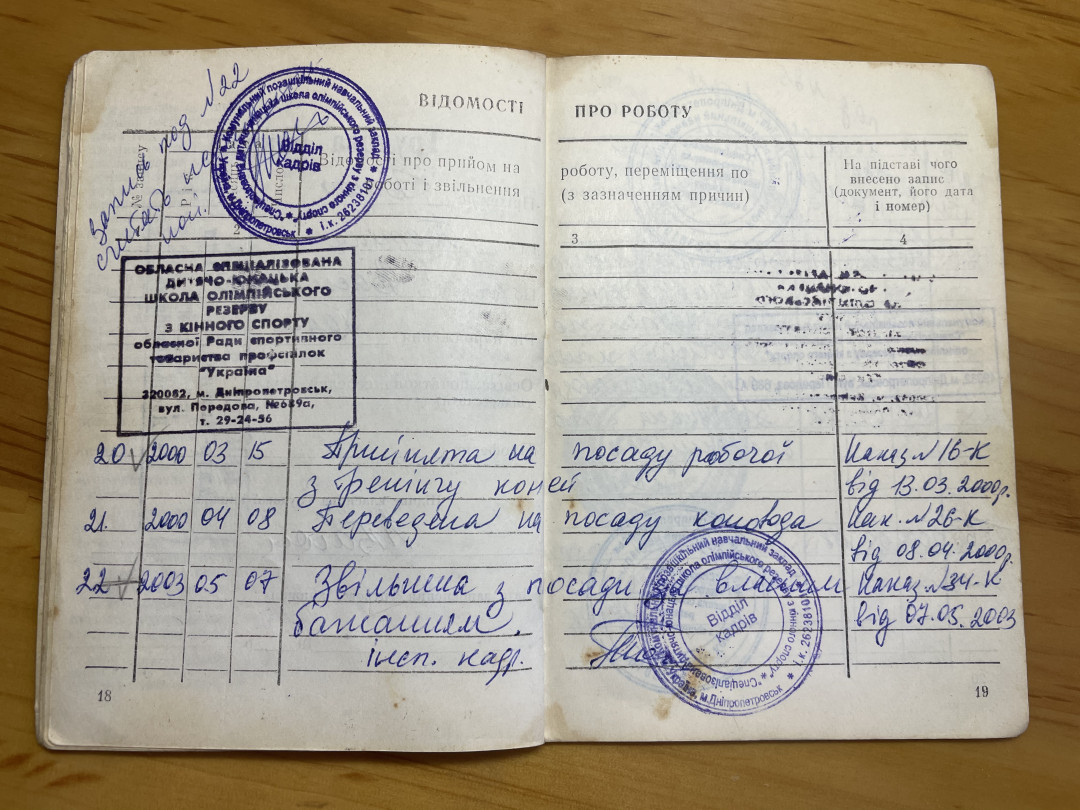 ВІДОМОСТІ ПРО РОБОТУ
Запись под №22
считать не
№ запису
Відділ кадрів
Комунальний позашкільний навчальний заклад
"Спеціалізована дитячо-юнацька школа олімпійського резерву з кінного спорту"
м. Дніпропетровськ * і.к. 26238101 *
Відомості про прийом на роботу, переміщення по
роботі і звільнення (з зазначенням причин)
На підставі чого
внесено запис
(документ, його дата
і номер)
2 3 4
ОБЛАСНА СПЕЦІАЛІЗОВАНА
ДИТЯЧО-ЮНАЦЬКА
ШКОЛА ОЛІМПІЙСЬКОГО
РЕЗЕРВУ
З КІННОГО СПОРТУ
обласної Ради спортивного
товариства профспілок
"Україна"
320082, м. Дніпропетровськ,
вул. Передова, №689а,
т. 29-24-56
20 2000 03 15 Прийнята на посаду робочої Наказ №16-К
з тренінгу коней від 13.03.2000р.
21. 2000 04 08 Переведена на посаду коновода Нак. №26-К
від 08.04.2000р.
22 2003 05 07 Звільнена з посади власним Наказ №34-К
бажанням. від 07.05.2003
інсп. кадр.
Відділ кадрів
позашкільний навчальний заклад
школа олімпійського резерву з кінного спорту" * "Спеціалізована
м. Дніпропетровськ * і.к. 26238101
18 19